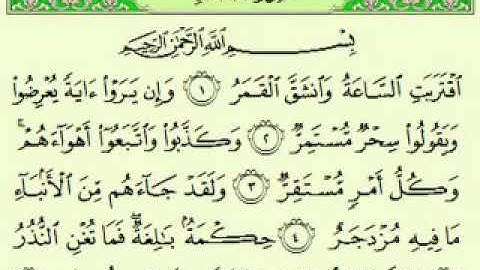 بِسْمِ ٱللَّهِ ٱلرَّحْمَٰنِ ٱلرَّحِيمِ
ٱقْتَرَبَتِ ٱلسَّاعَةُ وَٱنشَقَّ ٱلْقَمَرُ ١ وَإِن يَرَوْا۟ ءَايَةً يُعْرِضُوا۟
وَيَقُولُوا۟ سِحْرٌ مُّسْتَمِرٌّ ٢ وَكَذَّبُوا۟ وَٱتَّبَعُوٓا۟ أَهْوَآءَهُمْ ۚ
وَكُلُّ أَمْرٍ مُّسْتَقِرٌّ ٣ وَلَقَدْ جَآءَهُم مِّنَ ٱلْأَنۢبَآءِ
مَا فِيهِ مُزْدَجَرٌ ٤ حِكْمَةٌۢ بَٰلِغَةٌ ۖ فَمَا تُغْنِ ٱلنُّذُرُ